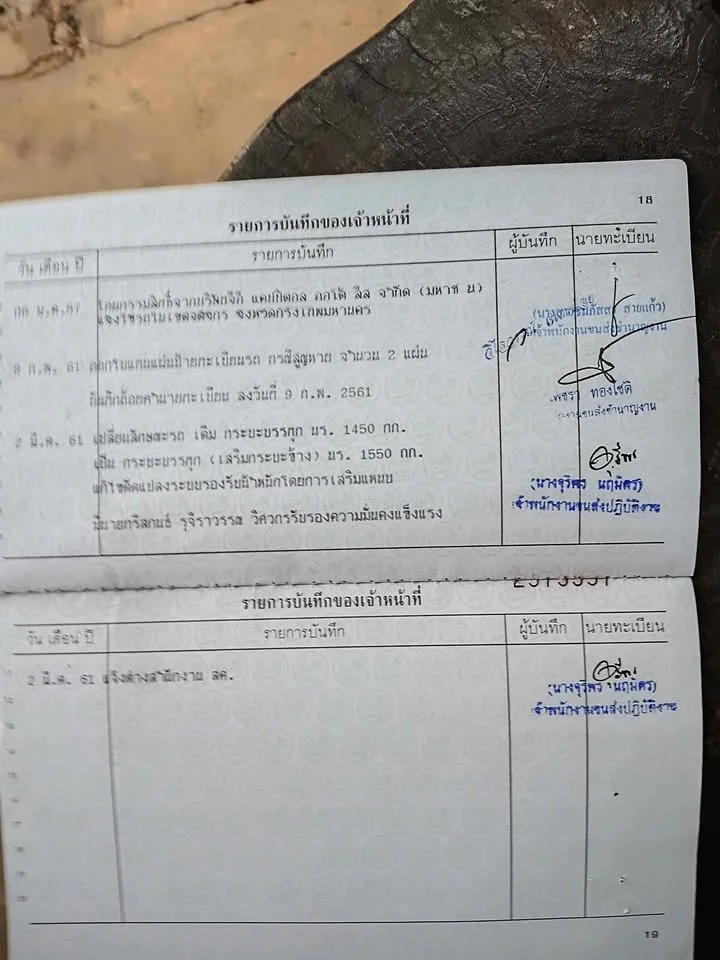 18
รายการบันทึกของเจ้าหน้าที่
วัน เดือน ปี รายการบันทึก ผู้บันทึก นายทะเบียน
โอนกรรมสิทธิ์จากบริษัท แคปปิตอล ออโต้ ลีส จำกัด (มหาชน)
แจ้งใช้รถในเขตจตุจักร จังหวัดกรุงเทพมหานคร
สายแก้ว)
เจ้าพนักงานขนส่งชำนาญงาน
9 ก.พ. 61 ออกใบแทนแผ่นป้ายทะเบียนรถ กรณีสูญหาย จำนวน 2 แผ่น
บันทึกถ้อยคำนายทะเบียน ลงวันที่ 9 ก.พ. 2561
พชรา ทองโชติ
งานขนส่งชำนาญงาน
2 มี.ค. 61 เปลี่ยนลักษณะรถ เดิม กระบะบรรทุก นร. 1450 กก.
เป็น กระบะบรรทุก (เสริมกระบะข้าง) นร. 1550 กก.
แก้ไขดัดแปลงระบบรองรับน้ำหนักโดยการเสริมแหนบ
(นางจุริพร นฤมิตร)
เจ้าพนักงานขนส่งปฏิบัติงาน
มีนายกริสกนธ์ รุจิราวรรณ วิศวกรรับรองความมั่นคงแข็งแรง
รายการบันทึกของเจ้าหน้าที่
วัน เดือน ปี รายการบันทึก ผู้บันทึก นายทะเบียน
2 มี.ค. 61 แจ้งต่างสำนักงาน สค.
(นางจุริพร นฤมิตร)
เจ้าพนักงานขนส่งปฏิบัติงาน
19